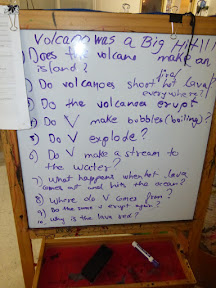 Volcano was a Big Hit!!!
1) Does the volcano make an
island?
fire/
2) Do volcanoes shoot hot lava
everywhere?
3) Do the volcanoes erupt
4) Do V make bobbles (boiling)?
5) Do V explode?
6) Do V make a stream to
the water?
7) What happens when hot lava
comes out and hits the ocean?
8) Where do V comes from?
9) Do the same V erupt again?
10) Why is the lava red?